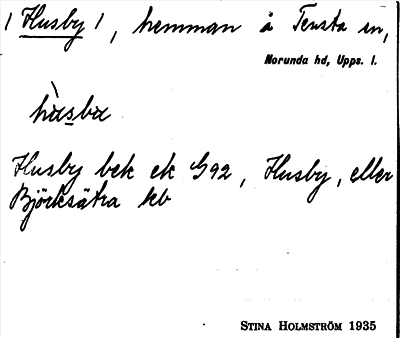 / Husby /, hemman å Tensta sn,
Norunda hd, Upps. l.
hùsba
Husby bek ek G92, Husby, eller
Björksätra kb
STINA HOLMSTRÖM 1935